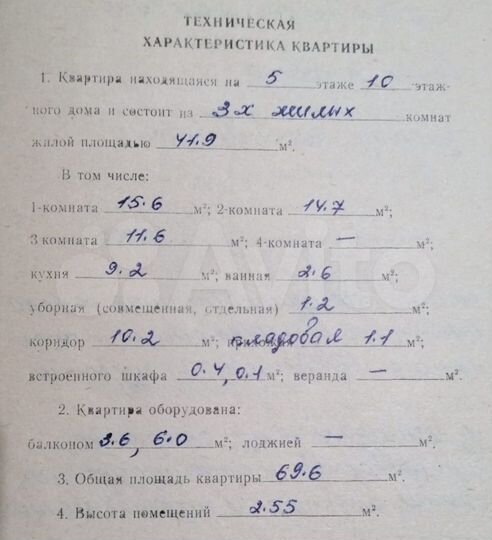 ТЕХНИЧЕСКАЯ
ХАРАКТЕРИСТИКА КВАРТИРЫ
1. Квартира находящаяся на 5 этаже 10 этаж-
ного дома и состоит из 3х жилых комнат
жилой площадью 41.9 м².
В том числе:
1-комната 15.6 м²; 2-комната 14.7 м²;
3 комната 11.6 м²; 4-комната — м²;
кухня 9.2 м²; ванная 2.6 м²;
уборная (совмещенная, отдельная) 1.2 м²;
коридор 10.2 м²; кладовая 1.1 м²;
встроенного шкафа 0.4, 0.1 м²; веранда — м².
2. Квартира оборудована:
балконом 3.6, 6.0 м²; лоджией — м².
3. Общая площадь квартиры 69.6 м².
4. Высота помещений 2.55 м².
Avito